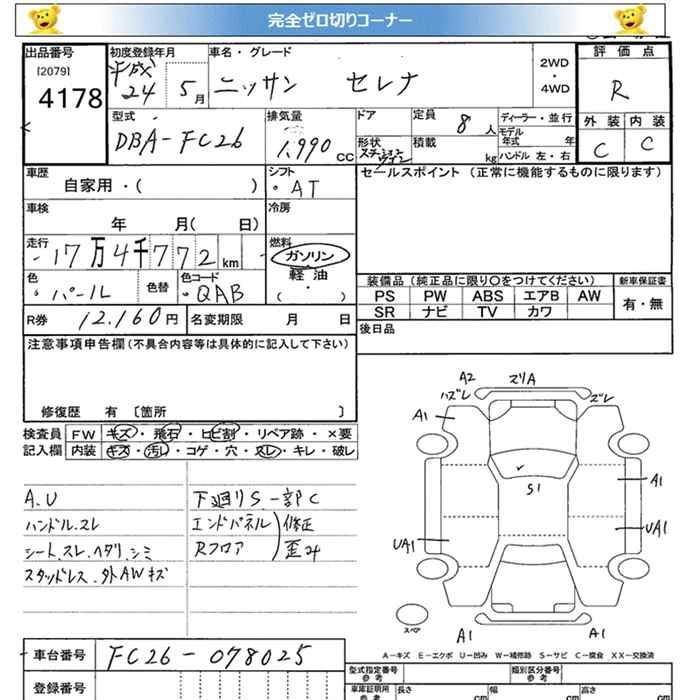 完全ゼロ切りコーナー
出品番号 [2079] 4178
初度登録年月 平成24 5月
車名・グレード ニッサン セレナ
2WD・4WD
評価点 R
型式 DBA-FC26
排気量 1,990 cc
ドア
定員 8人
形状 ステーションワゴン
積載 kg
ディーラー・並行
モデル年式 年
ハンドル 左・右
外装 内装
C C
車歴 自家用・( )
シフト AT
セールスポイント(正常に機能するものに限ります)
車検 年 月( 日)
冷房
走行 17万4千772km
燃料 ガソリン 軽油 ・ ( )
色 パール 色替 色コード QAB
装備品(純正品に限り〇をつけてください)
新車保証書
PS PW ABS エアB AW
SR ナビ TV カワ
有・無
R券 12,160円 名変期限 月 日
後日品
注意事項申告欄(不具合内容等は具体的に記入して下さい)
修復歴 有 〔箇所 〕
検査員記入欄
FW キズ・飛石・ヒビ割・リペア跡・×要
内装 キズ・汚し・コゲ・穴・スレ・キレ・破レ
A.U
ハンドル.スレ
シート.スレ.ヘタリ.シミ
スタッドレス.外AWキズ
下廻りS一部C
エンドパネル 修正
Rフロア 歪み
A2 ズリA
ハズレ ズレ
A1
S1
A1
UA1
UA1
スペア
A1 A1
A-キズ E-エクボ U-凹み W-補修跡 S-サビ C-腐食 XX-交換済
車台番号 FC26-078025
登録番号
型式指定番号 類別区分番号
車庫証明用参考 長さ cm 幅 cm 高さ cm